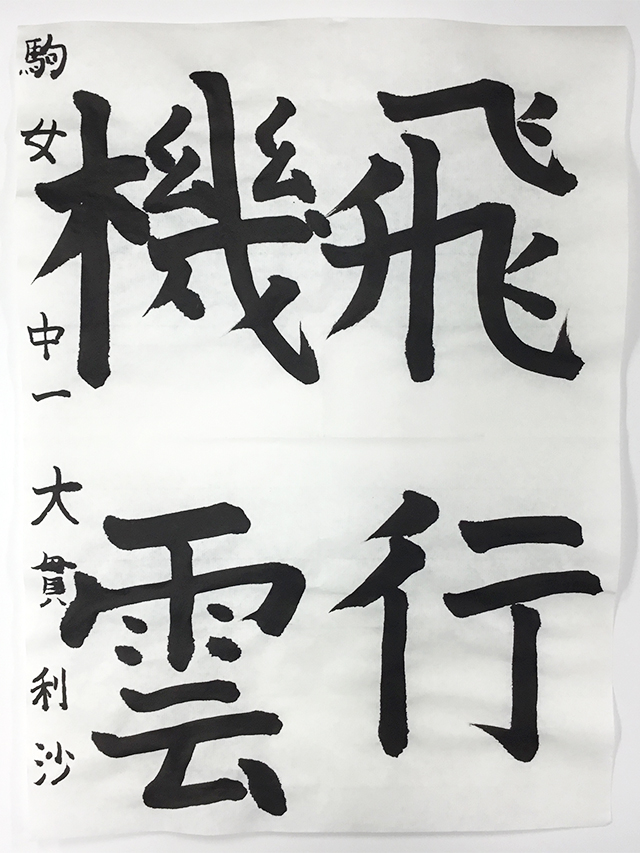 飛行
機雲
駒女中一 大貫利沙